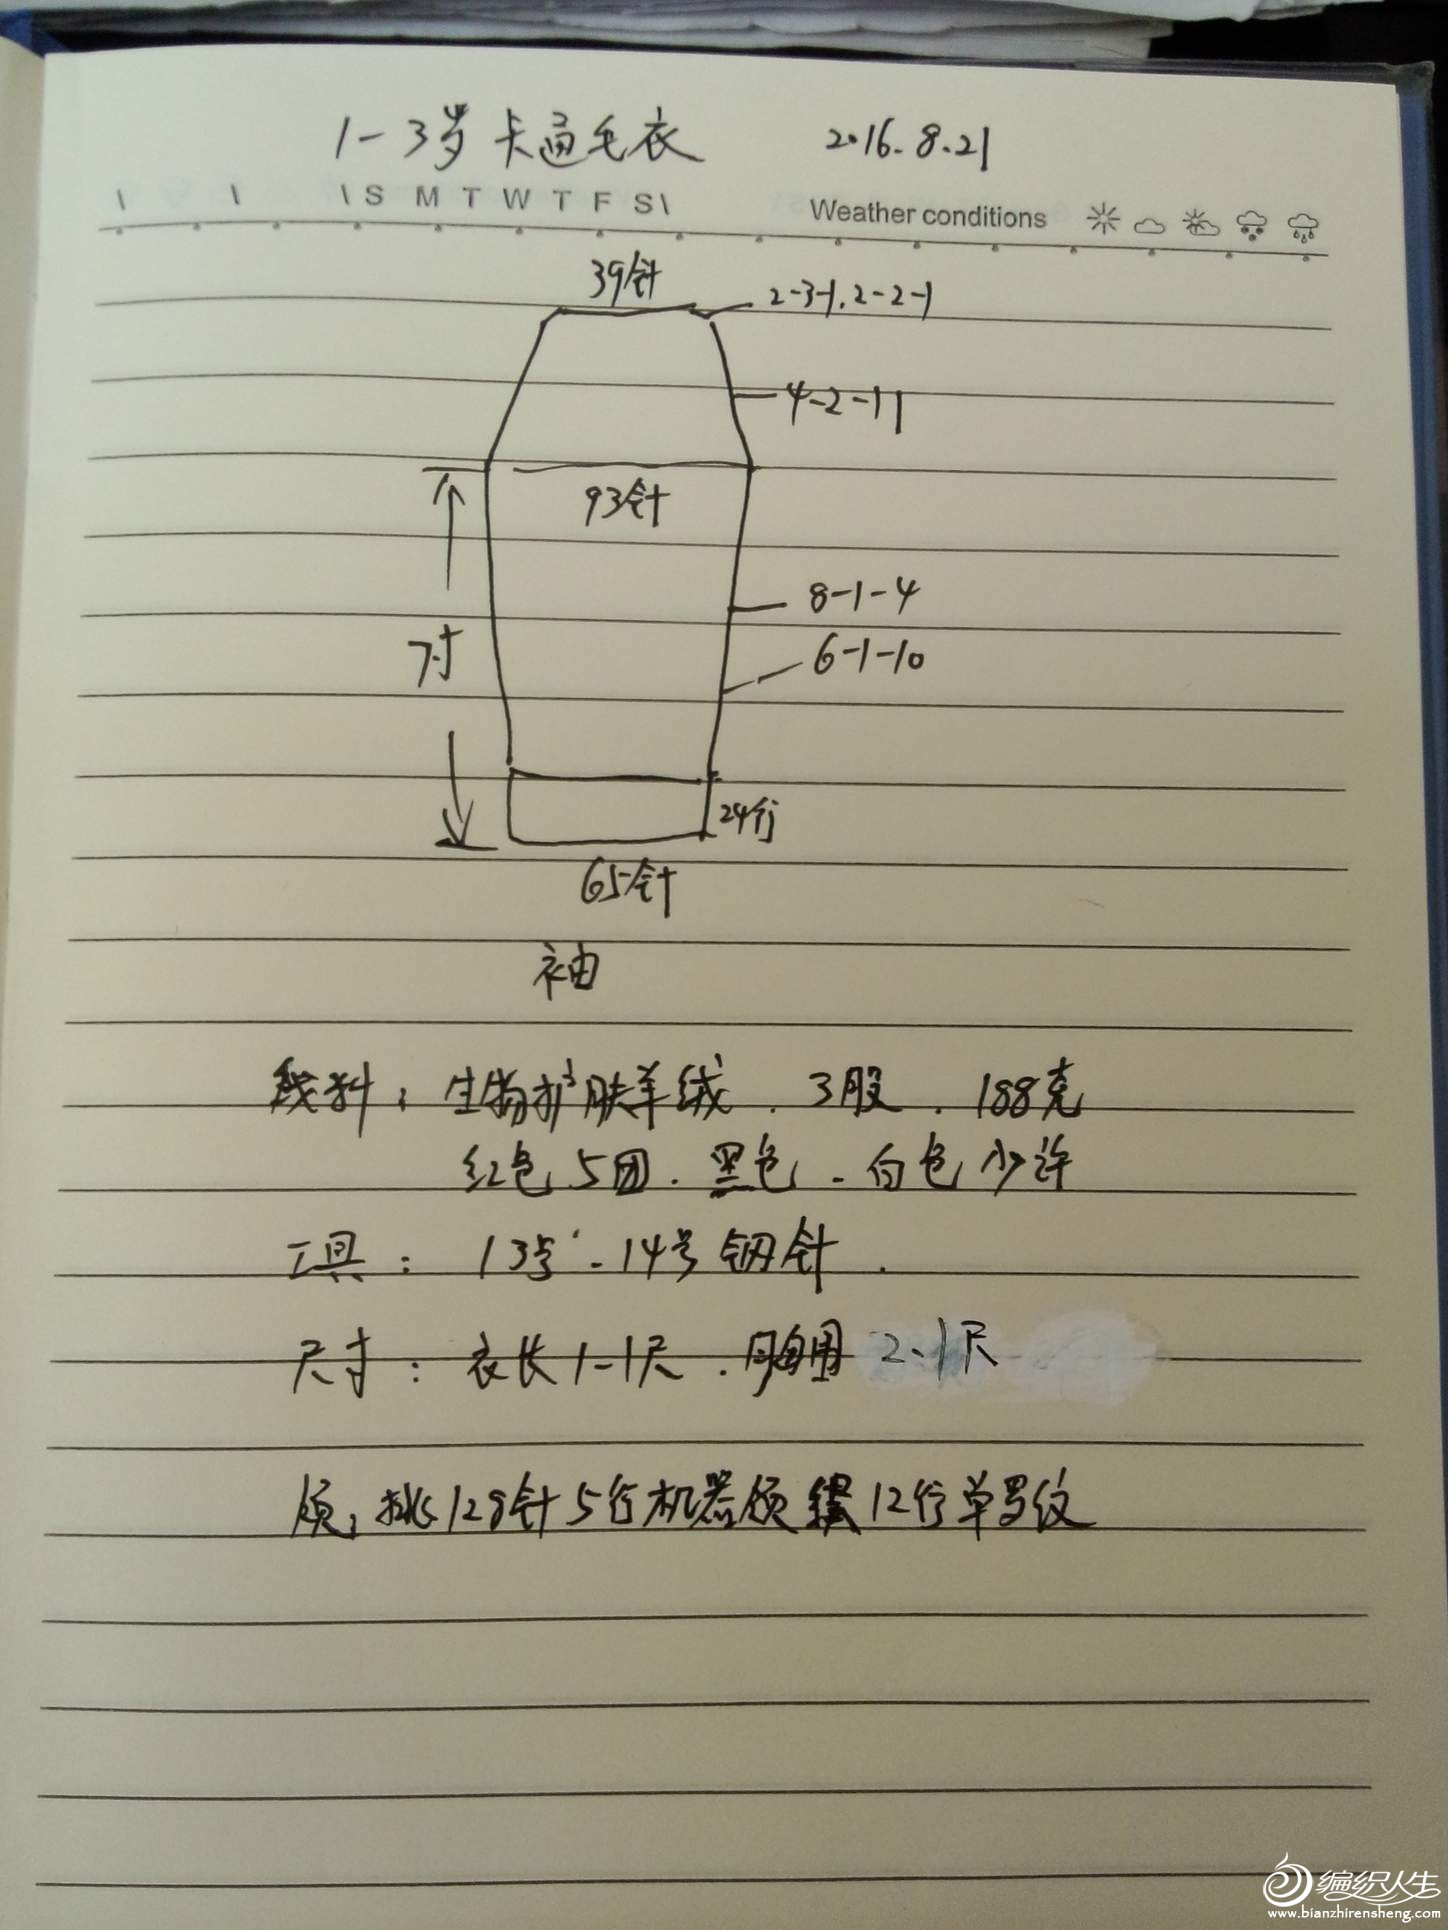 1-3岁卡通毛衣 2016.8.21
\ \ \ S M T W T F S \ Weather conditions
39针 2-3-1.2-2-1
4-2-11
93针
8-1-4
7寸 6-1-10
24行
65针
袖
线料：生物护肤羊绒.3股.188克
红色5团.黑色.白色少许
工具：13号.14号钢针.
尺寸：衣长1-1尺.胸围2.1尺
领：挑128针5行机器领 12行单罗纹
编织人生
www.bianzhirensheng.com